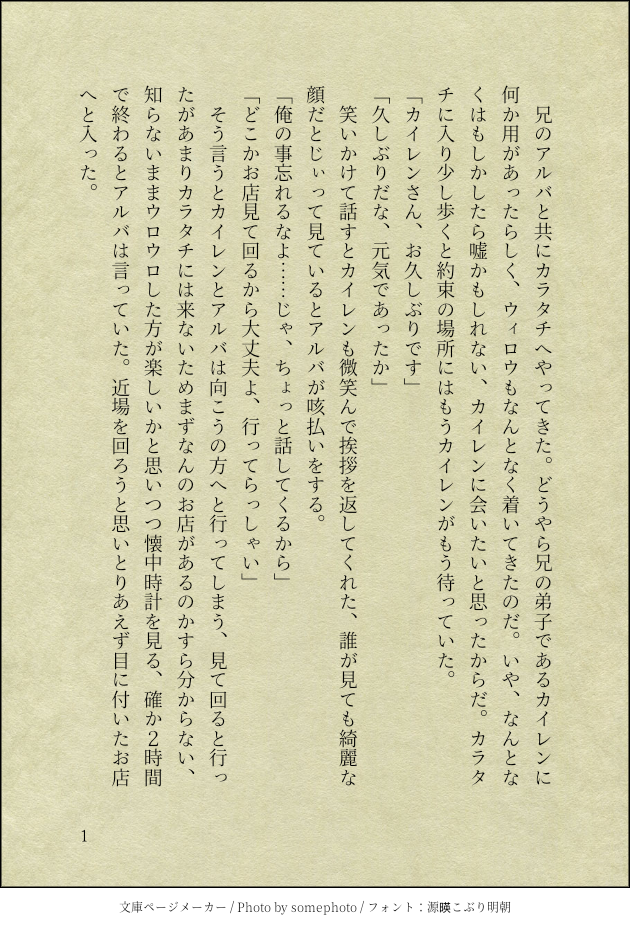 兄のアルバと共にカラタチへやってきた。どうやら兄の弟子であるカイレンに
何か用があったらしく、ウィロウもなんとなく着いてきたのだ。いや、なんとな
くはもしかしたら嘘かもしれない、カイレンに会いたいと思ったからだ。カラタ
チに入り少し歩くと約束の場所にはもうカイレンがもう待っていた。
「カイレンさん、お久しぶりです」
「久しぶりだな、元気であったか」
　笑いかけて話すとカイレンも微笑んで挨拶を返してくれた、誰が見ても綺麗な
顔だとじぃって見ているとアルバが咳払いをする。
「俺の事忘れるなよ……じゃ、ちょっと話してくるから」
「どこかお店見て回るから大丈夫よ、行ってらっしゃい」
　そう言うとカイレンとアルバは向こうの方へと行ってしまう、見て回ると行っ
たがあまりカラタチには来ないためまずなんのお店があるのかすら分からない、
知らないままウロウロした方が楽しいかと思いつつ懐中時計を見る、確か２時間
で終わるとアルバは言っていた。近場を回ろうと思いとりあえず目に付いたお店
へと入った。
1
文庫ページメーカー / Photo by somephoto / フォント：源暎こぶり明朝